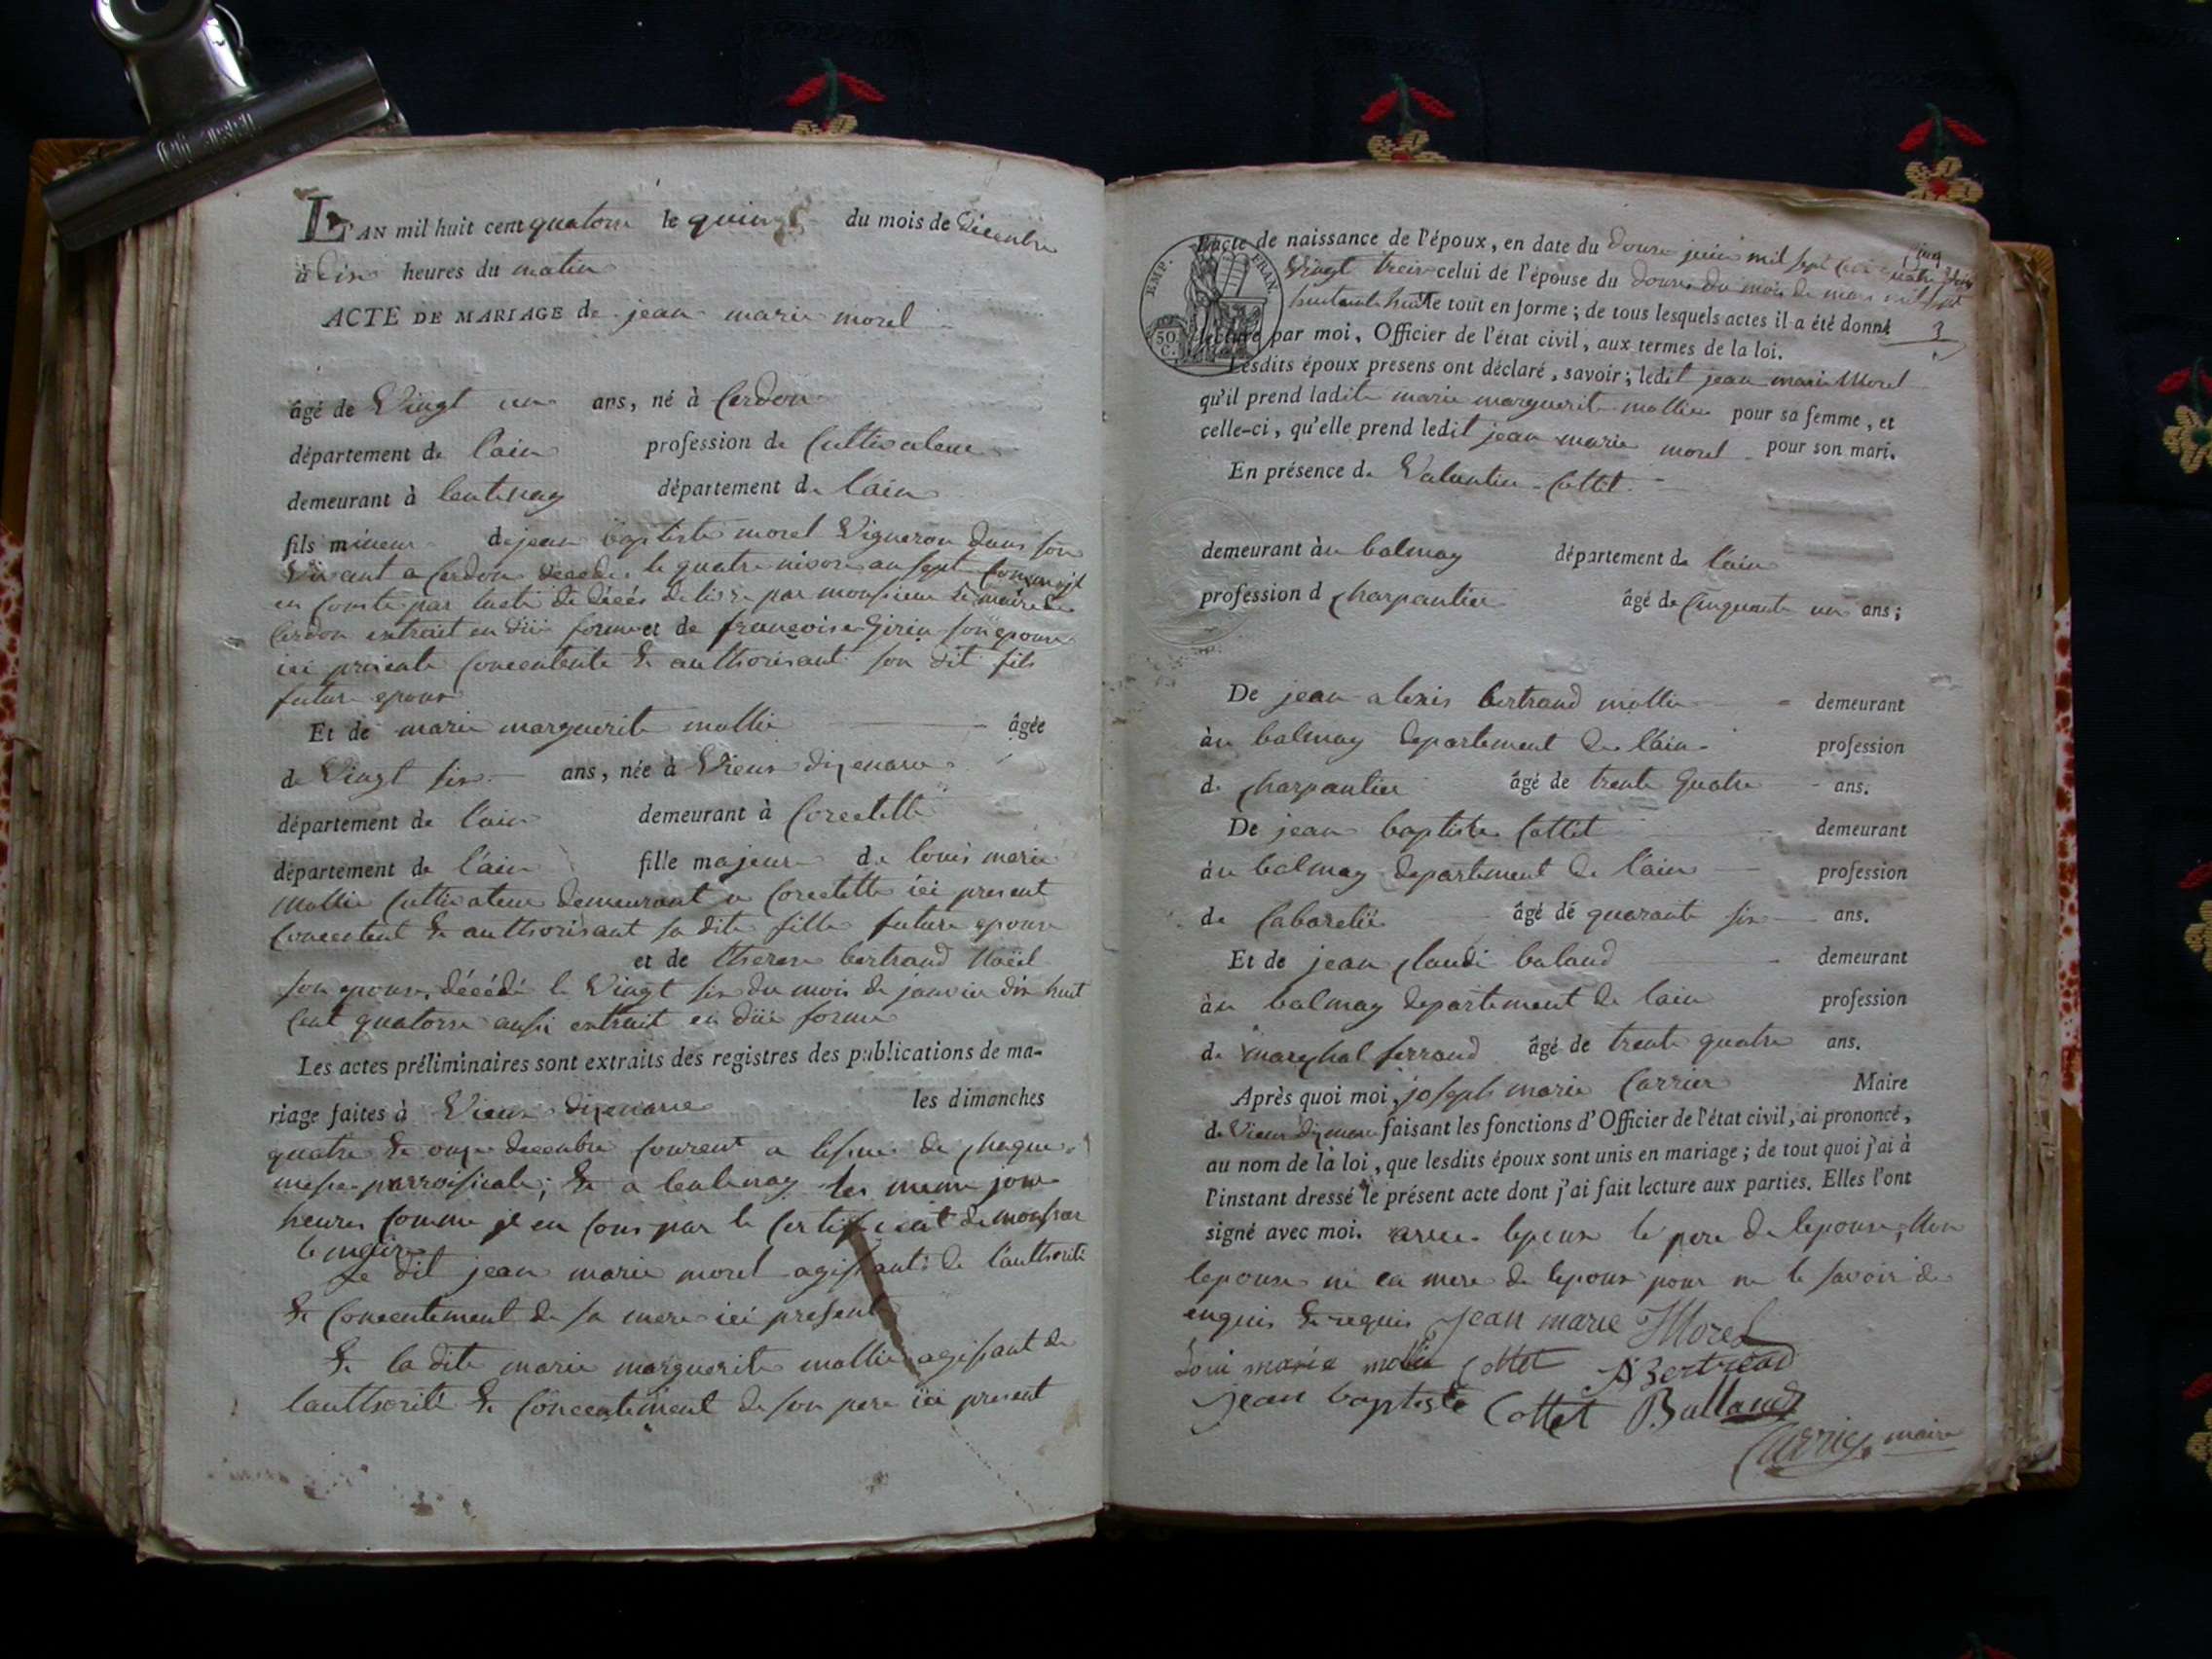 L'AN mil huit cent quatorse le quinze du mois de décembre
à dix heures du matin
ACTE DE MARIAGE de jean marie morel
âgé de Vingt un ans, né à Cerdon
département de l'ain profession de Cultivateur
demeurant à lentenay département de l'ain
fils mineur de jean baptiste morel Vigneron dans son
Vivant a Cerdon décédé le quatre nivose an sept
en par lacte de décés délivré par monsieur le maire de
Cerdon extrait en düe forme et de françoise Girin son epouse
ici presente Concentente & authorisant son dit fils
futur epoux
Et de marie marguerite mollie âgée
de Vingt six ans, née à Vieux dizenave
département de l'ain demeurant à Corcelette
département de l'ain fille majeure de louis marie
Mollie Cultivateur demeurant a Corcelette ici present
Concentent & authorisant sa dite fille future epouse
et de therese bertrand Noëël
son epouse, décédé le Vingt six du mois de janvier dix huit
Cent quatorse aussi extrait en düe forme
Les actes préliminaires sont extraits des registres des publications de ma-
riage faites à Vieux dizenave les dimanches
quatre & onze decembre Courent a lissue de chaque
messe parroissicale; & a lentenay les meme jour
heures Comme par le Certificat de monsieur
le maire
Le dit jean marie morel agissant de l'authorité
& Concentement de sa mere ici present
& la dite marie marguerite mollie agissant de
lauthorité & Concentement de son pere ici present
EMP. FRAN.
50 C.
L'acte de naissance de l'époux, en date du douse juin mil sept Cent quatre
Vingt treise celui de l'épouse du douse du mois de mars mil sept
huitante huite tout en forme; de tous lesquels actes il a été donné
lecture par moi, Officier de l'état civil, aux termes de la loi.
Lesdits époux présens ont déclaré, savoir; ledit jean marie Morel
qu'il prend ladite marie marguerite mollie pour sa femme, et
celle-ci, qu'elle prend ledit jean marie morel pour son mari.
En présence de Valentin Cottet
demeurant àu balmay département de l'ain
profession d Charpantier âgé de Cinquante un ans;
De jean alexis bertrand mollie demeurant
àu balmay departement de l'ain profession
de Charpantier âgé de trente Quatre ans.
De jean baptiste Cottet demeurant
àu balmay departement de l'ain profession
de Cabaretié âgé de quarante six ans.
Et de jean Claude baland demeurant
àu balmay departement de lain profession
de marechal ferrand âgé de trente quatre ans.
Après quoi moi, joseph marie Carrier Maire
de Vieux dizenave faisant les fonctions d'Officier de l'état civil, ai prononcé,
au nom de la loi, que lesdits époux sont unis en mariage; de tout quoi j'ai à
l'instant dressé le présent acte dont j'ai fait lecture aux parties. Elles l'ont
signé avec moi. avec lepoux le pere de lepouse, Non
lepouse ni la mere de lepoux pour ne le savoir de
enquis & requis jean marie Morel
Loui marie molie Cottet Bertrand
jean baptiste Cottet Balland
Carrier maire